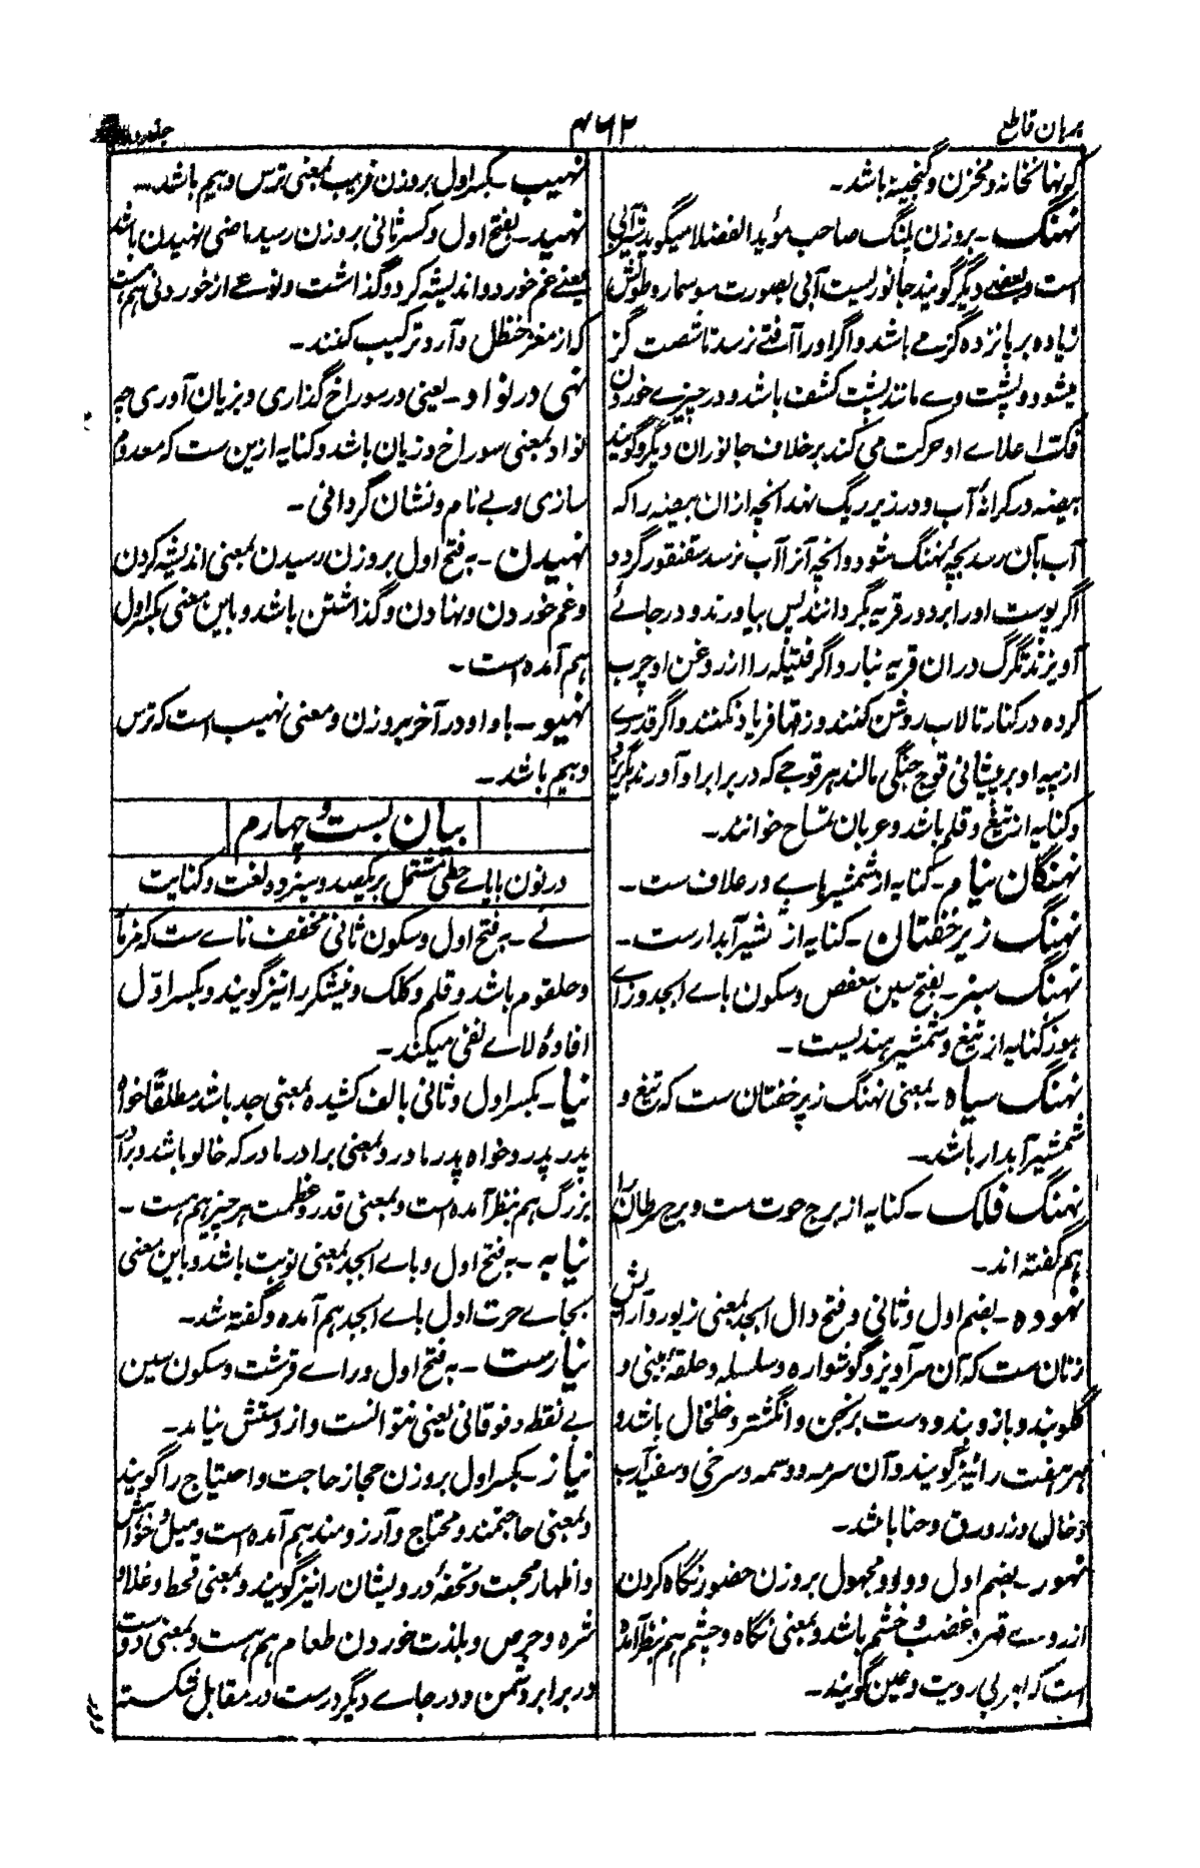 برهان قاطع
۴۶۲
جلد دوم
کو نهانخانه و مخزن و گنجینه باشد۔
نهنگ۔ بروزن پلنگ صاحب مؤید الفضلا میگوید شیر آبی
است و بعضے دیگر گویند جانوریست آبی بصورت سوسمار و طولش
زیاده بر پانزده گز مے باشد و اگر او را آفتے نرسد تا شصت گز
میشود و پشت وے مانند پشت کشف باشد و در چیزے خوردن
فک اعلاے او حرکت می کند بر خلاف جانوران دیگر و گویند
بیضه در کرانهٔ آب و در زیر ریگ نهد انچه ازان بیضه را که
آب بآن رسد بچهٔ نهنگ شود و انچه آنرا آب نرسد سقنقور گردد
اگر پوست او را بر دور قریه بگردانند پس بیاورند و در جائے
آویزند تگرگ دران قریه نبارد اگر فتیله را از روغن او چرب
کرده در کنار تالاب روشن کنند وزقها فریاد نکنند و اگر قدرے
از پیه او بر پیشانی قوچ جنگی مالند هر قوچے که در برابر او آورند بگریزد
و کنایه از تیغ و قلم باشد و عربان تمساح خوانند۔
نهنگان نیام۔ کنایه از شمشیرهاے در غلاف ست۔
نهنگ زیر خفتان۔ کنایه از شمشیر آبدارست۔
نهنگ سبز۔ بفتح سین سعفص و سکون باے ابجد و زاے
هوز کنایه از تیغ و شمشیر هندیست۔
نهنگ سیاه۔ بمعنی نهنگ زیر خفتان ست که تیغ و
شمشیر آبدار باشد۔
نهنگ فلک۔ کنایه از برج حوت ست و برج سرطان را
هم گفته اند۔
نهوده۔ بضم اول و ثانی و فتح دال ابجد بمعنی زیور و آرایش
زنان ست که آن سرآویز و گوشواره و سلسله و حلقهٔ بینی و
گلوبند و بازوبند و دست برنجن و انگشتر و خلخال باشد و
هر هفت را نیز گویند و آن سرمه و وسمه و سرخی و سفید آب
و خال و زرورق و حنا باشد۔
نهور۔ بضم اول و واو مجهول بروزن حضور نگاه کردن
از روے قهر و غضب و خشم باشد و بمعنی نگاه و چشم هم بنظر آمده
است که بعربی رویت و عین گویند۔
نهیب۔ بکسر اول بروزن فریب بمعنی ترس و بیم باشد۔
نهید۔ بفتح اول و کسر ثانی بروزن رسید ماضی نهیدن باشد
یعنے غم خورد و اندیشه کرد و گذاشت و نوعے از خوردنی هم هست
که از مغز حنظل و آرد ترکیب کنند۔
نهی در نواد۔ یعنی در سوراخ گذاری و بزیان آوری چه
نواد بمعنی سوراخ و زیان باشد و کنایه ازین ست که معدوم
سازی و بے نام و نشان گردانی۔
نهیدن۔ به فتح اول بروزن رسیدن بمعنی اندیشه کردن
و غم خوردن و نهادن و گذاشتن باشد و باین معنی بکسر اول
هم آمده است۔
نهیو۔ با واو در آخر بروزن و معنی نهیب است که ترس
و بیم باشد۔
بیان بست و چهارم
در نون با یاے حطی مشتمل بر یکصد و سیزده لغت و کنایت
نے۔ به فتح اول و سکون ثانی مخفف ناے ست که مزمار
و حلقوم باشد و قلم و کلک و نیشکر را نیز گویند و بکسر اوّل
افادهٔ لاے نفی میکند۔
نیا۔ بکسر اول و ثانی بالف کشیده بمعنی جد باشد مطلقًا خواه
پدر پدر و خواه پدر مادر و بمعنی برادر مادر که خالو باشد و برادر
بزرگ هم بنظر آمده است و بمعنی قدر و عظمت هر چیز هم هست۔
نیابه۔ به فتح اول و باے ابجد بمعنی نوبت باشد و باین معنی
بجاے حرف اول باے ابجد هم آمده و گفته شد۔
نیارست۔ به فتح اول و راے قرشت و سکون سین
بے نقطه و فوقانی یعنی نتوانست و از دستش نیامد۔
نیاز۔ بکسر اول بروزن حجاز حاجت و احتیاج را گویند
و بمعنی حاجتمند و محتاج و آرزومند هم آمده است و میل و خواهش
و اظهار محبت و تحفهٔ درویشان را نیز گویند و بمعنی قحط و غلا و
شره و حرص و بلذت خوردن طعام هم هست و بمعنی دوست
در برابر دشمن و در جاے دیگر درست در مقابل شکسته